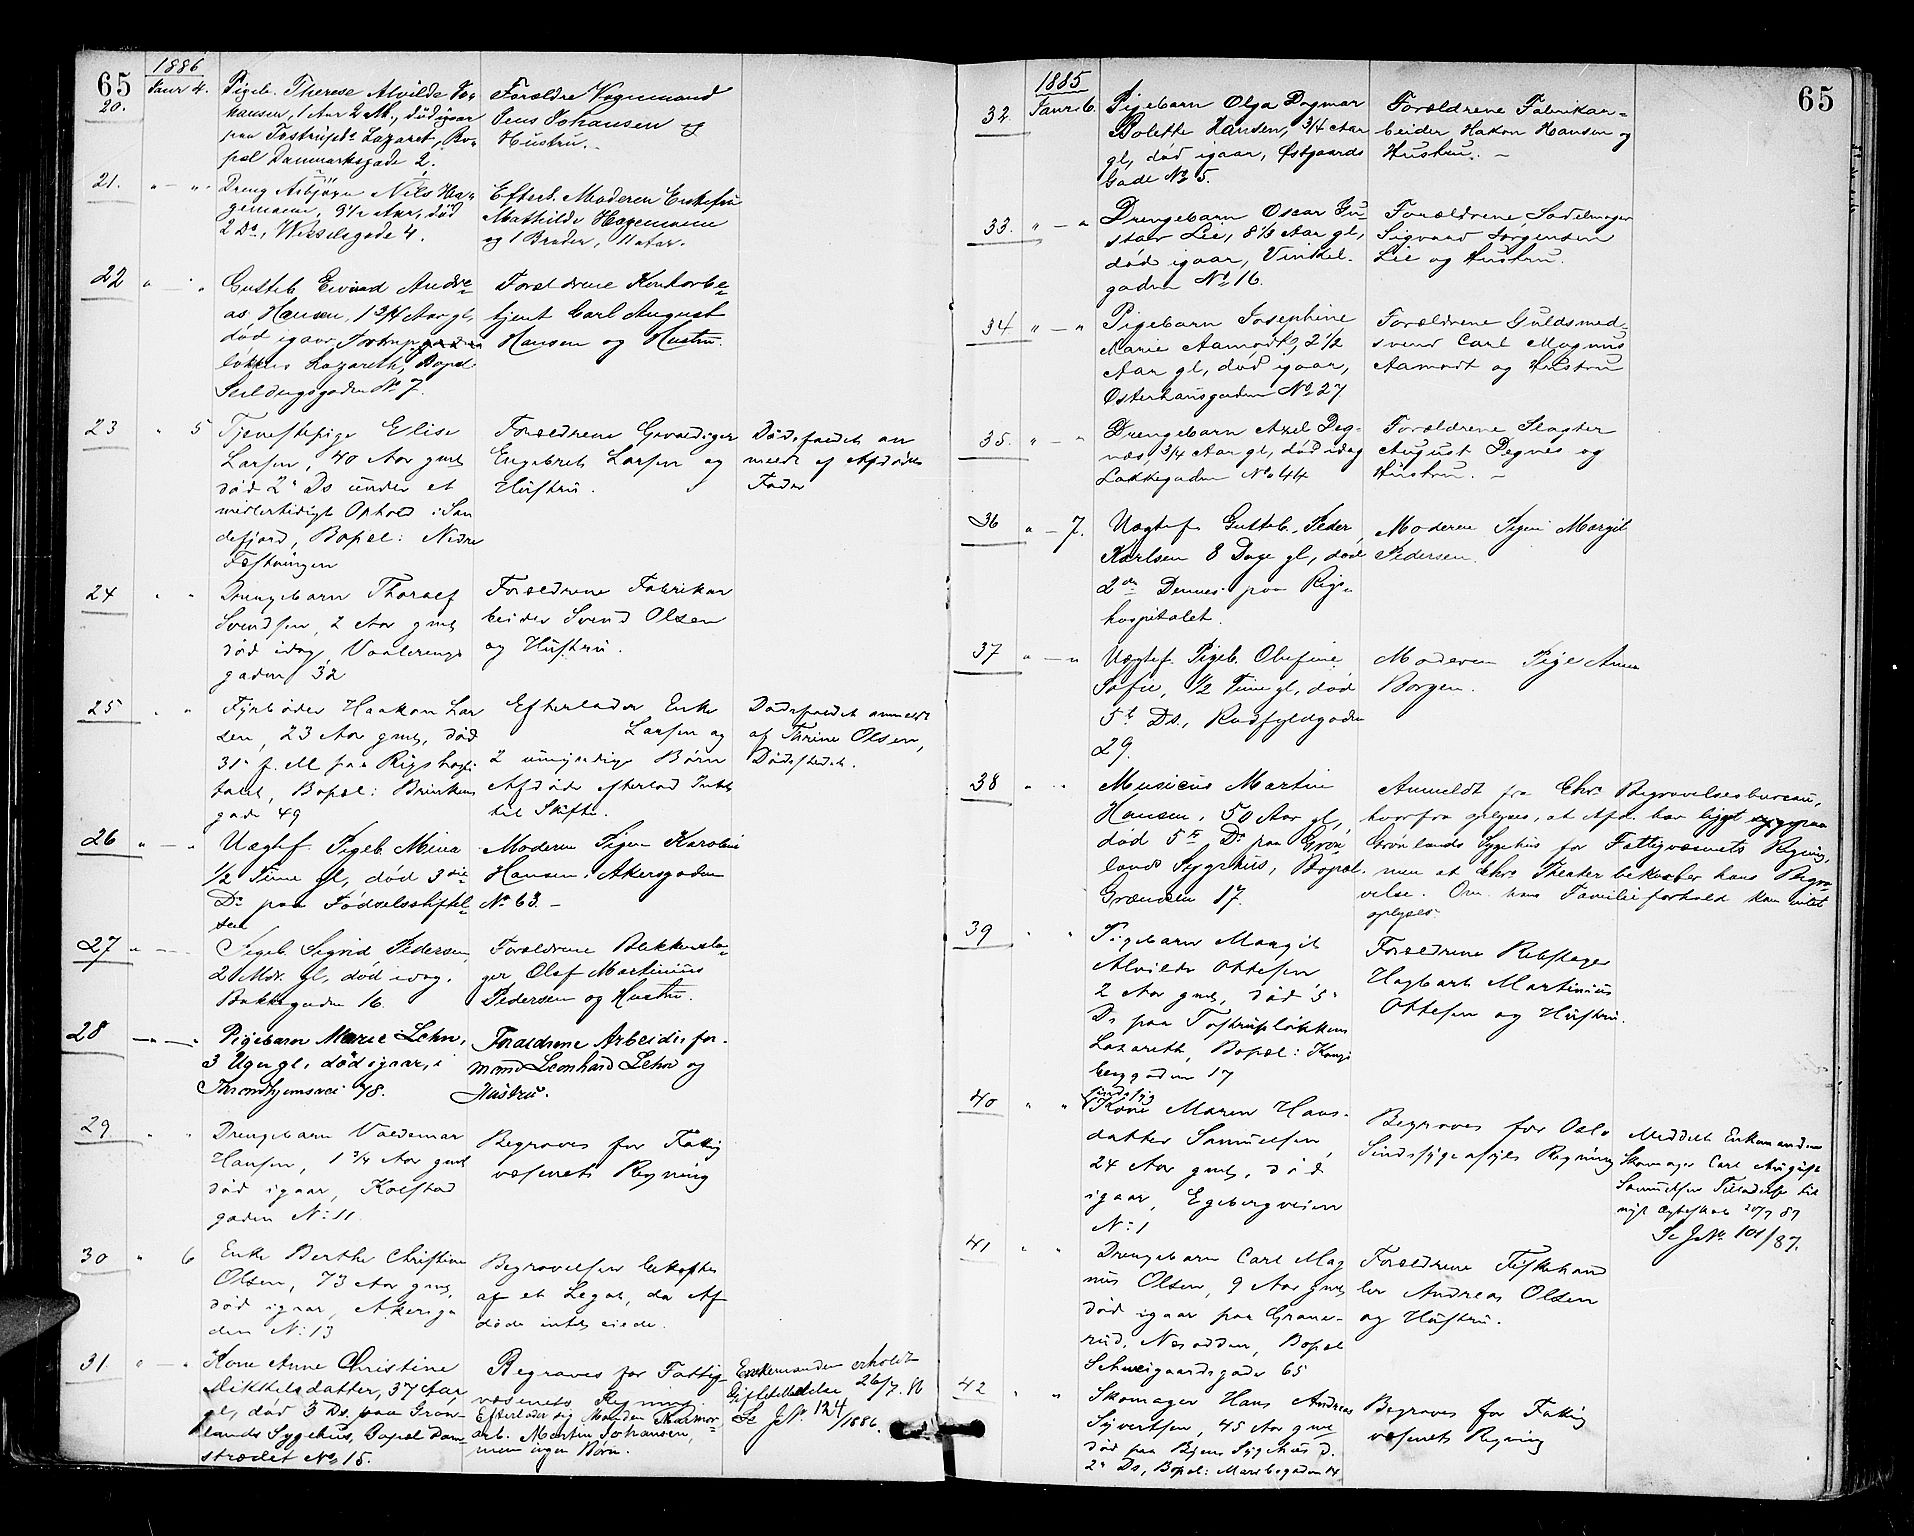 65
1886
20. Janr 4. Pigeb. Therese Alvilde Jo-
hansen, 1 Aar 2 M., död igaar
paa Tostrupsls Lazaret, Bo-
pæl Danmarksgade 2.
Forældre Vognmand
Jens Johansen og
Hustru.
21. " — " Dreng Asbjörn Nils Ha-
gemann, 9½ Aar, död
2 Ds, Wesselsgade 4.
Efterl. Moderen Enkefru
Mathilde Hagemann
og 1 Broder, 11 Aar.
22 " — " Gutteb. Eivind Andre-
as Hansen, 1 3/4 Aar gl,
død igaar, Tostrup
løkkens Lazareth, Bopæl
Seildugsgaden No 7.
Forældrene Kontorbe-
tjent Carl August
Hansen og Hustru.
23 " 5 Tjenestepige Elise
Larsen, 40 Aar gml
død 2' Ds under et
midlertidigt Ophold i San
defjord, Bopæl: Nedre
Fæstningen
Forældrene Gevaldiger
Engebret Larsen og
Hustru.
Dødsfaldet an
meldt af Afdødes
Fader
24 " " Drengebarn Thoralf
Svendsen, 2 Aar gml
død idag, Vaalerengs
gaden 32
Forældrene Fabrikar
beider Svend Olsen
og Hustru.
25 " " Fyrbøder Haakon Lar
sen, 23 Aar gml, død
31' f. M paa Rigshospi
talet, Bopæl: Brinkens
gade 49
Efterlader Enke
Larsen og
2 umyndige Børn
Afdøde efterlod Intet
til Skifte.
Dødsfaldet anmeldt
af Thrine Olsen,
Dødsstedet.
26 " — " Uægtef. Pigeb. Mina
½ Time gl, død 3die
Ds paa Fødselsstiftel-
sen
Moderen Pigen Karoline
Hansen, Akersgaden
No 63. —
27 " — " Pigeb. Sigrid Pedersen,
2 Mdr. gl, død idag,
Bakkegaden 16
Forældrene Blikkensla-
ger Olaf Martinius
Pedersen og Hustru.
28 — " — " Pigebarn Marie Lehn,
3 Uger gl, død igaar, i
Throndhjemsvei 78.
Forældrene Arbeidsfor-
mand Leonhard Lehn og
Hustru.
29 " " Drengebarn Valdemar
Hansen, 1 3/4 Aar gml
død igaar, Kolstad
gaden No 11
Begraves for Fattig
væsenets Regning
30 " 6 Enke Berthe Christine
Olsen, 73 Aar gml,
død igaar, Akersga
den No 13
Begravelsen bekostes
af et Legat, da Af
døde intet eiede.
31 " — " Kone Anne Christine
Mikkelsdatter, 37 Aar
gl, død 3 Ds. paa Grøn-
lands Sygehus, Bopæl Dam-
strædet No 15.
Begraves for Fattig-
væsenets Regning
Efterlader sig Manden Marmor-
arb. Martin Johansen,
men ingen Børn.
Enkemanden erholdt
Giftetilladelse 26/7. 86
Se JNo 124/1886.
65
1885
32. Janr 6. Pigebarn Olga Dagmar
Bolette Hansen, 3/4 Aar
gl, død igaar, Østgaards
Gade No 5.
Forældrene Fabrikar-
beider Hakon Hansen og
Hustru. —
33. " — " Drengebarn Oscar Gu-
stav Lie, 8½ Aar gl,
død igaar, Vinkel-
gaden No 16.
Forældrene Sadelmager
Sigvard Jørgensen
Lie og Hustru.
34 " — " Pigebarn Josephine
Marie Aamodt, 2 1/2
Aar gl, død igaar,
Osterhausgaden No 27
Forældrene Guldsmed-
svend Carl Magnus
Aamodt og Hustru
35. " — " Drengebarn Axel Deg-
næs, 3/4 Aar gl, død idag
Lakkegaden No 44
Forældrene Slagter
August Degnes og
Hustru. —
36 " — 7. Uægtef. Gutteb. Peder
Karlsen 8 Dage gl, død
2den Dennes paa Rigs-
hospitalet.
Moderen Pigen Margit
Pedersen.
37 " — " Uægtef. Pigeb. Olufine
Sofie, ½ Time gl, død
5t Ds., Rodfyldgaden
29.
Moderen Pige Anna
Borgen.
38 " " Musicus Martin
Hansen, 50 Aar gl,
død 5te Ds paa Grøn
lands Sygehus, Bopæl.
Grændsen 17.
Anmeldt fra Chra Begravelsesbureau,
hvorfra oplyses, at Afd. har ligget syg paa
Grønlands Sygehus for Fattigvæsenets Regning,
men at Chra Theater bekoster hans Begra-
velse. Om hans Familieforhold kan intet
oplyses.
39 " " Pigebarn Margit
Alvilde Ottesen
2 Aar gml, død 5'
Ds paa Tostrupløkkens
Lazareth, Bopæl: Kongs
berggaden 17
Forældrene Rebslager
Hagbart Martinius
Ottesen og Hustru.
40 " " sindssyg
Kone Maren Hans-
datter Samuelsen,
24 Aar gml, død
igaar, Egebergveien
No 1
Begraves for Oslo
Sindssygeasyls Regning
Meddelt Enkemanden
Skomager Carl August
Samuelsen Tilladelse til
nyt Ægteskab 20/7 87
Se JNo 101/87.
41 " " Drengebarn Carl Mag
nus Olsen, 9 Aar gml
død igaar paa Grane-
rud, Næsodden, Bopæl
Schweigaardsgade 65
Forældrene Fiskehand
ler Andreas Olsen
og Hustru.
42 " " Skomager Hans Andreas
Syvertsen, 45 Aar gml
død paa Byens Sygehus d.
2' Ds, Bopæl: Maribogaden 14
Begraves for Fattig
væsenets Regning